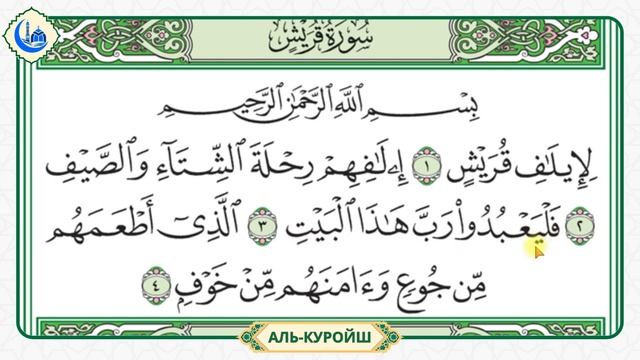 سُورَةُ قُرَيْشٍ
بِسْمِ ٱللَّهِ ٱلرَّحْمَٰنِ ٱلرَّحِيمِ
لِإِيلَٰفِ قُرَيْشٍ ١ إِۦلَٰفِهِمْ رِحْلَةَ ٱلشِّتَآءِ وَٱلصَّيْفِ
٢ فَلْيَعْبُدُوا۟ رَبَّ هَٰذَا ٱلْبَيْتِ ٣ ٱلَّذِىٓ أَطْعَمَهُم
مِّن جُوعٍ وَءَامَنَهُم مِّنْ خَوْفٍۭ ٤
АЛЬ-КУРОЙШ